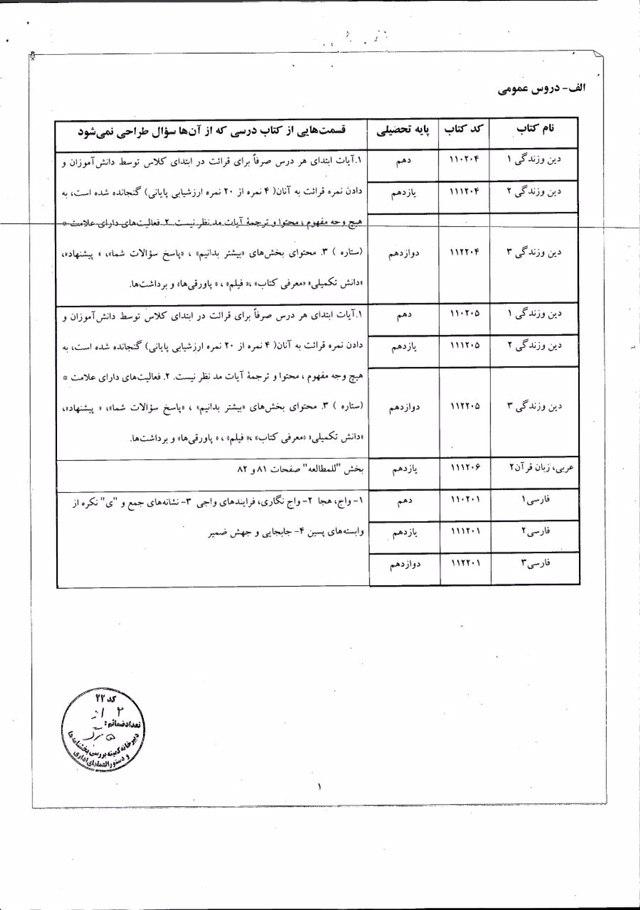 الف- دروس عمومی
نام کتاب کد کتاب پایه تحصیلی قسمت‌هایی از کتاب درسی که از آن‌ها سؤال طراحی نمی‌شود
دین وزندگی ۱ ۱۱۰۲۰۴ دهم ۱.آیات ابتدای هر درس صرفاً برای قرائت در ابتدای کلاس توسط دانش‌آموزان و
دین وزندگی ۲ ۱۱۱۲۰۴ یازدهم دادن نمره قرائت به آنان( ۴ نمره از ۲۰ نمره ارزشیابی پایانی) گنجانده شده است، به
هیچ وجه مفهوم ، محتوا و ترجمهٔ آیات مد نظر نیست. ۲. فعالیت‌های دارای علامت *
دین وزندگی ۳ ۱۱۲۲۰۴ دوازدهم (ستاره ) ۳. محتوای بخش‌های «بیشتر بدانیم» ، «پاسخ سؤالات شما»، « پیشنهاد»،
«دانش تکمیلی» «معرفی کتاب» ،« فیلم» ، « پاورقی‌ها» و برداشت‌ها.
دین وزندگی ۱ ۱۱۰۲۰۵ دهم ۱.آیات ابتدای هر درس صرفاً برای قرائت در ابتدای کلاس توسط دانش‌آموزان و
دین وزندگی ۲ ۱۱۱۲۰۵ یازدهم دادن نمره قرائت به آنان( ۴ نمره از ۲۰ نمره ارزشیابی پایانی) گنجانده شده است، به
هیچ وجه مفهوم ، محتوا و ترجمهٔ آیات مد نظر نیست. ۲. فعالیت‌های دارای علامت *
دین وزندگی ۳ ۱۱۲۲۰۵ دوازدهم (ستاره ) ۳. محتوای بخش‌های «بیشتر بدانیم» ، «پاسخ سؤالات شما»، « پیشنهاد»،
«دانش تکمیلی» «معرفی کتاب» ،« فیلم» ، « پاورقی‌ها» و برداشت‌ها.
عربی، زبان قرآن۲ ۱۱۱۲۰۶ یازدهم بخش "للمطالعه" صفحات ۸۱ و ۸۲
فارسی۱ ۱۱۰۲۰۱ دهم ۱- واج، هجا ۲- واج نگاری، فرایندهای واجی ۳- نشانه‌های جمع و "ی" نکره از
فارسی۲ ۱۱۱۲۰۱ یازدهم وابسته‌های پسین ۴- جابجایی و جهش ضمیر
فارسی۳ ۱۱۲۲۰۱ دوازدهم
کد ۲۲
۲ از
تعداد ضمائم:
۵ برگ
دبیرخانه کمیته بررسی بخشنامه ها
و دستورالعملهای اداری
۱